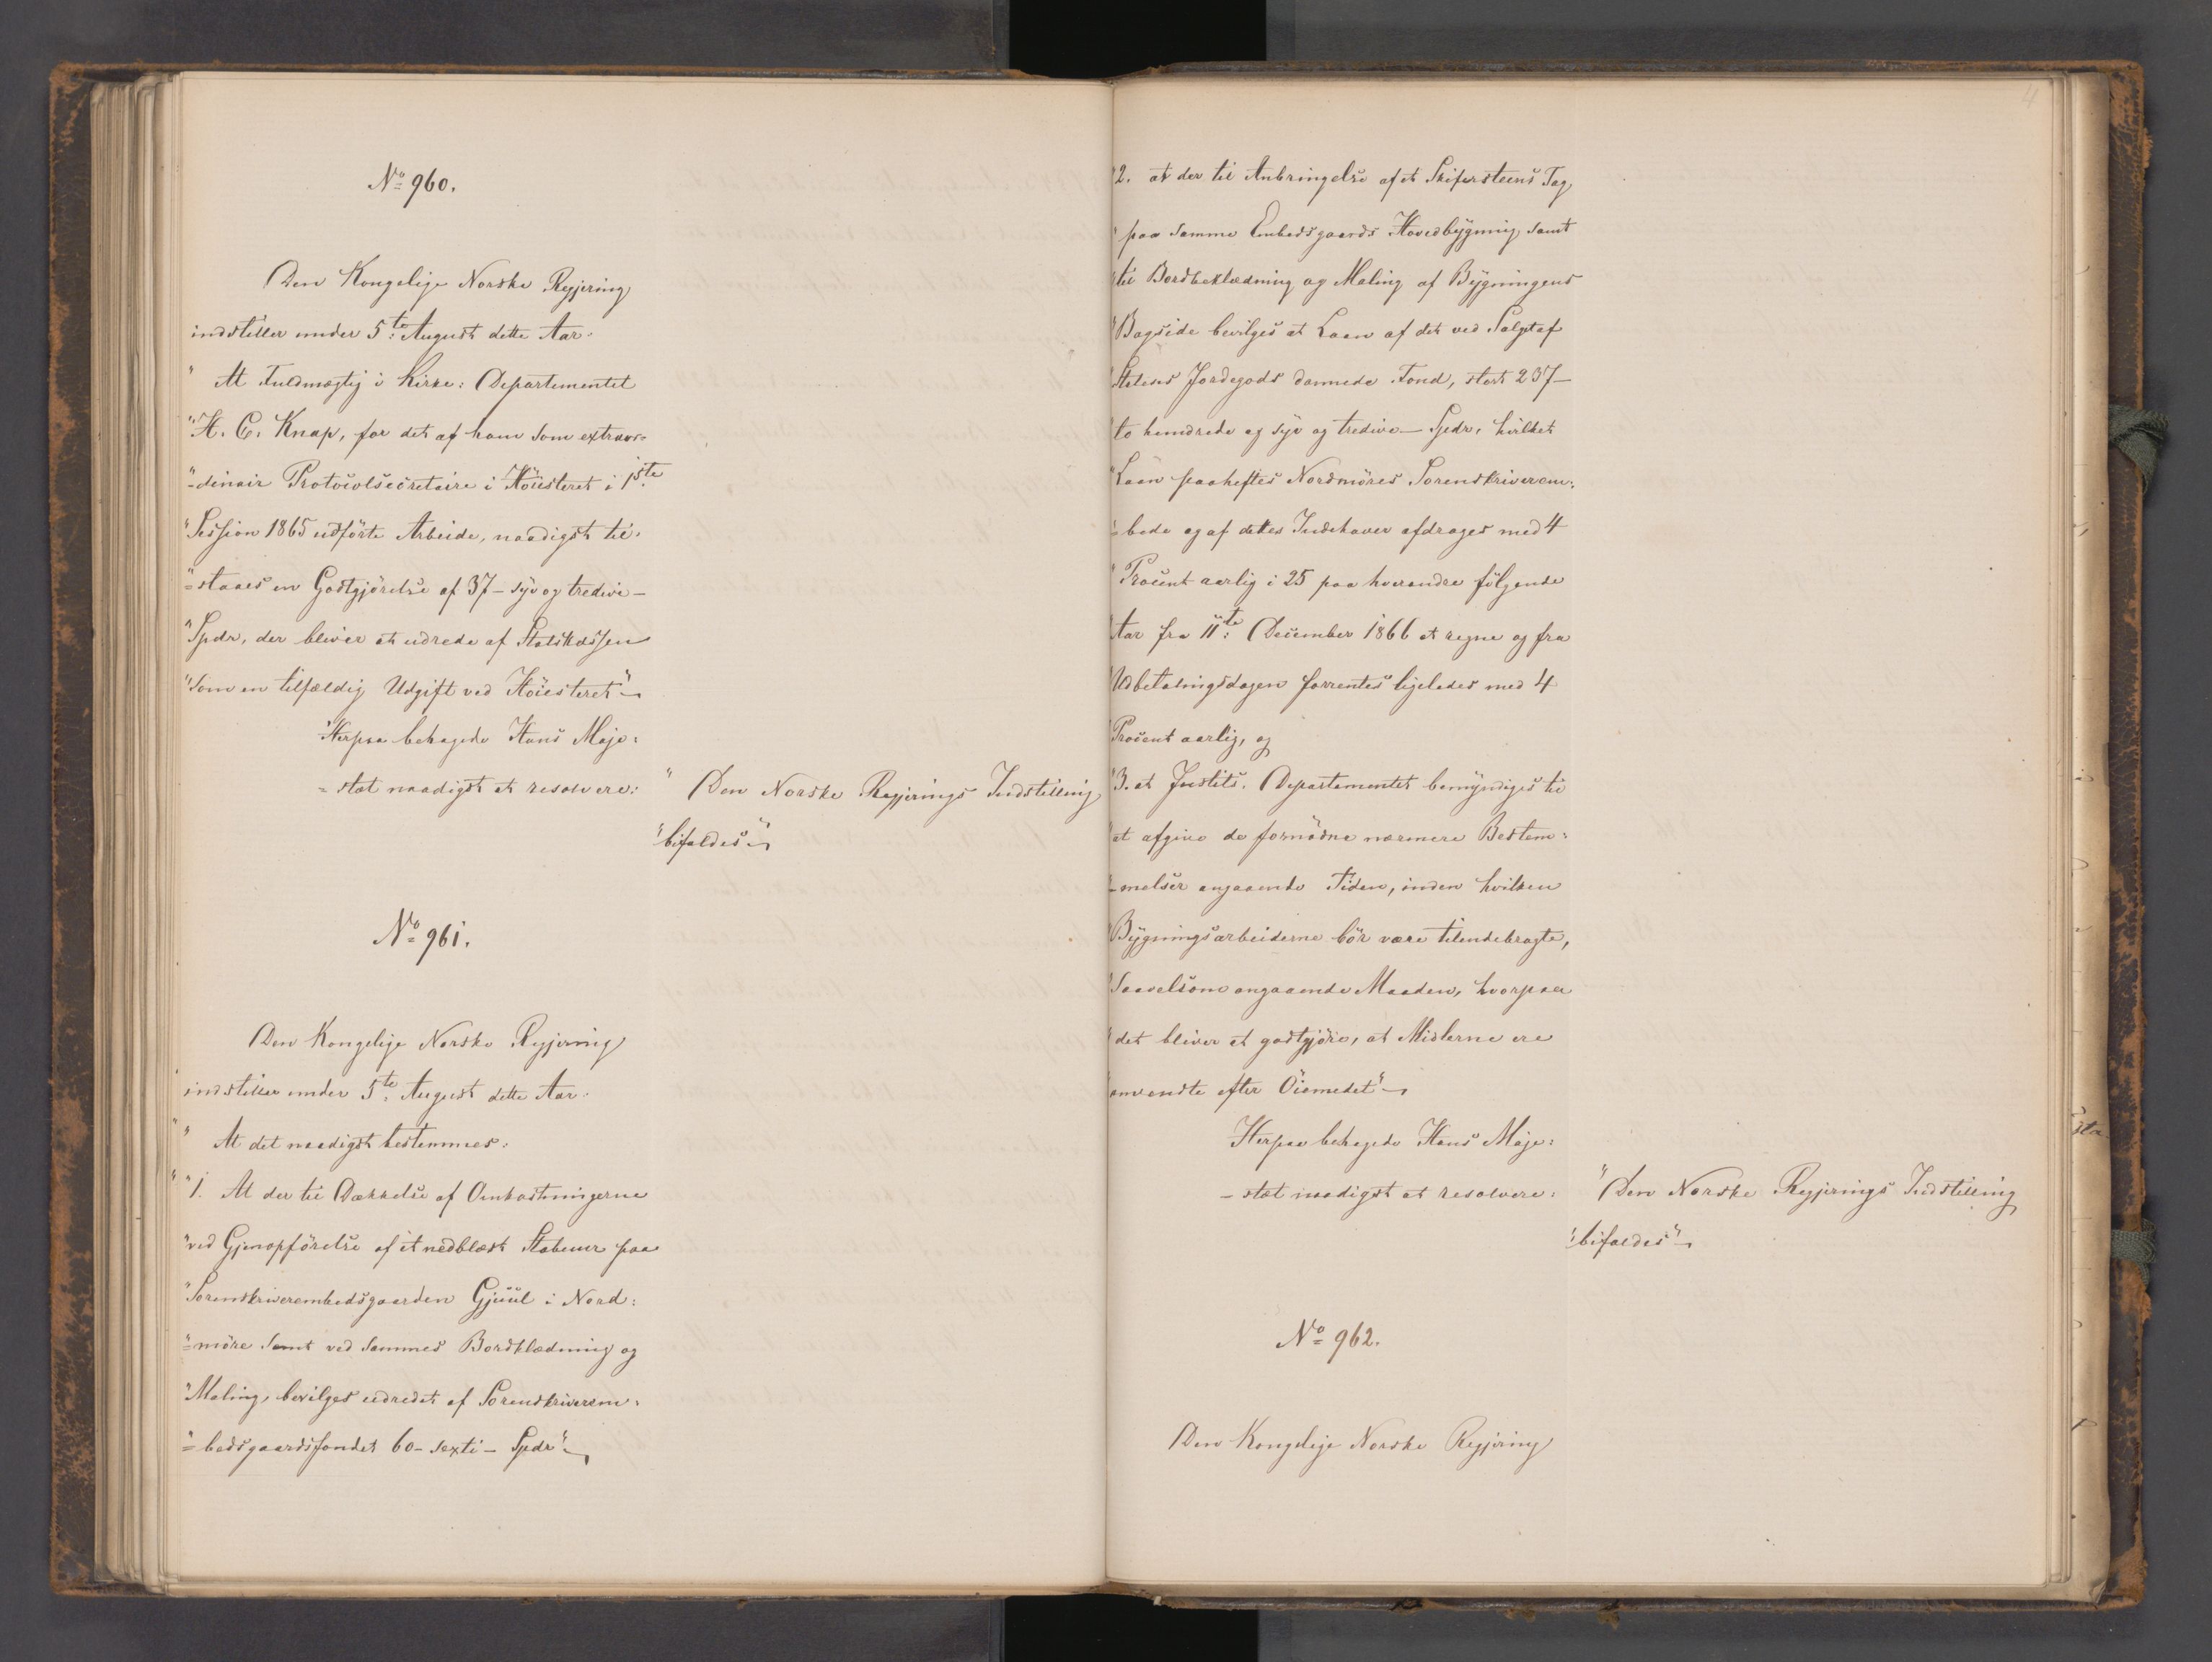 No 960.
Den Kongelige Norske Regjering
indstiller under 5te August dette Aar:
" At Fuldmægtig i Kirke: Departementet
"H. C. Knap, for det af ham som extraor=
"=dinair Protocolsecretaire i Höiesteret i 1ste
"Session 1865 udförte Arbeide, naadigst til=
"=staaes en Godtgjörelse af 37 - syv og tredive -
"Spdr, der bliver at udrede af Statskassen
"som en tilfældig Udgift ved Höiesteret"
Herpaa behagede Hans Maje=
=stæt naadigst at resolvere:
" Den Norske Regjerings Indstilling
"bifaldes"
No 961.
Den Kongelige Norske Regjering
indstiller under 5te August dette Aar:
" At det naadigst bestemmes:
" "1. At der til Dækkelse af Omkostningerne
"ved Gjenopförelse af et nedblæst Stabuur paa
"Sorenskriverembedsgaarden Gjüül i Nord=
"=möre samt ved sammes Bordklædning og
"Maling, bevilges udredet af Sorenskriverem=
"=bedsgaardsfondet 60 - sexti - Spdr"
"2. at der til Anbringelse af et Skifersteens Tag
"paa samme Embedsgaards Hovedbygning samt
"til Bordbeklædning og Maling af Bygningens
"Bagside bevilges et Laan af det ved Salg af
"Statens Jordegods dannede Fond, stort 237 -
"to hundrede og syv og tredive - Spdr, hvilket
"Laan paaheftes Nordmöres Sorenskriverem=
"=bede og af dettes Indehaver afdrages med 4
"Procent aarlig i 25 paa hverandre fölgende
"Aar fra 11te December 1866 at regne og fra
"Udbetalingsdagen forrentes ligeledes med 4
"Procent aarlig, og
"3. at Justits. Departementet bemyndiges til
"at afgive de fornödne nærmere Bestem=
"=melser angaaende Tiden, inden hvilken
"Bygningsarbeiderne bör være tilendebragte,
"saavelsom angaaende Maaden, hvorpaa
"det bliver at godtgjöre, at Midlerne ere
"anvendte efter Öiemedet"
Herpaa behagede Hans Maje=
=stæt naadigst at resolvere:
"Den Norske Regjerings Indstilling
"bifaldes"
No 962.
Den Kongelige Norske Regjering